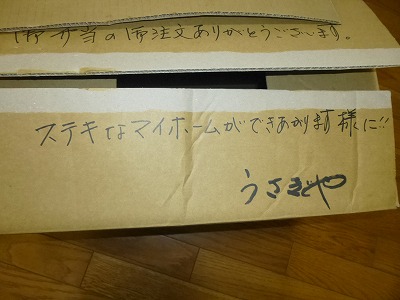 御弁当の御注文ありがとうございます。
ステキなマイホームができあがります様に!!
うさぎや